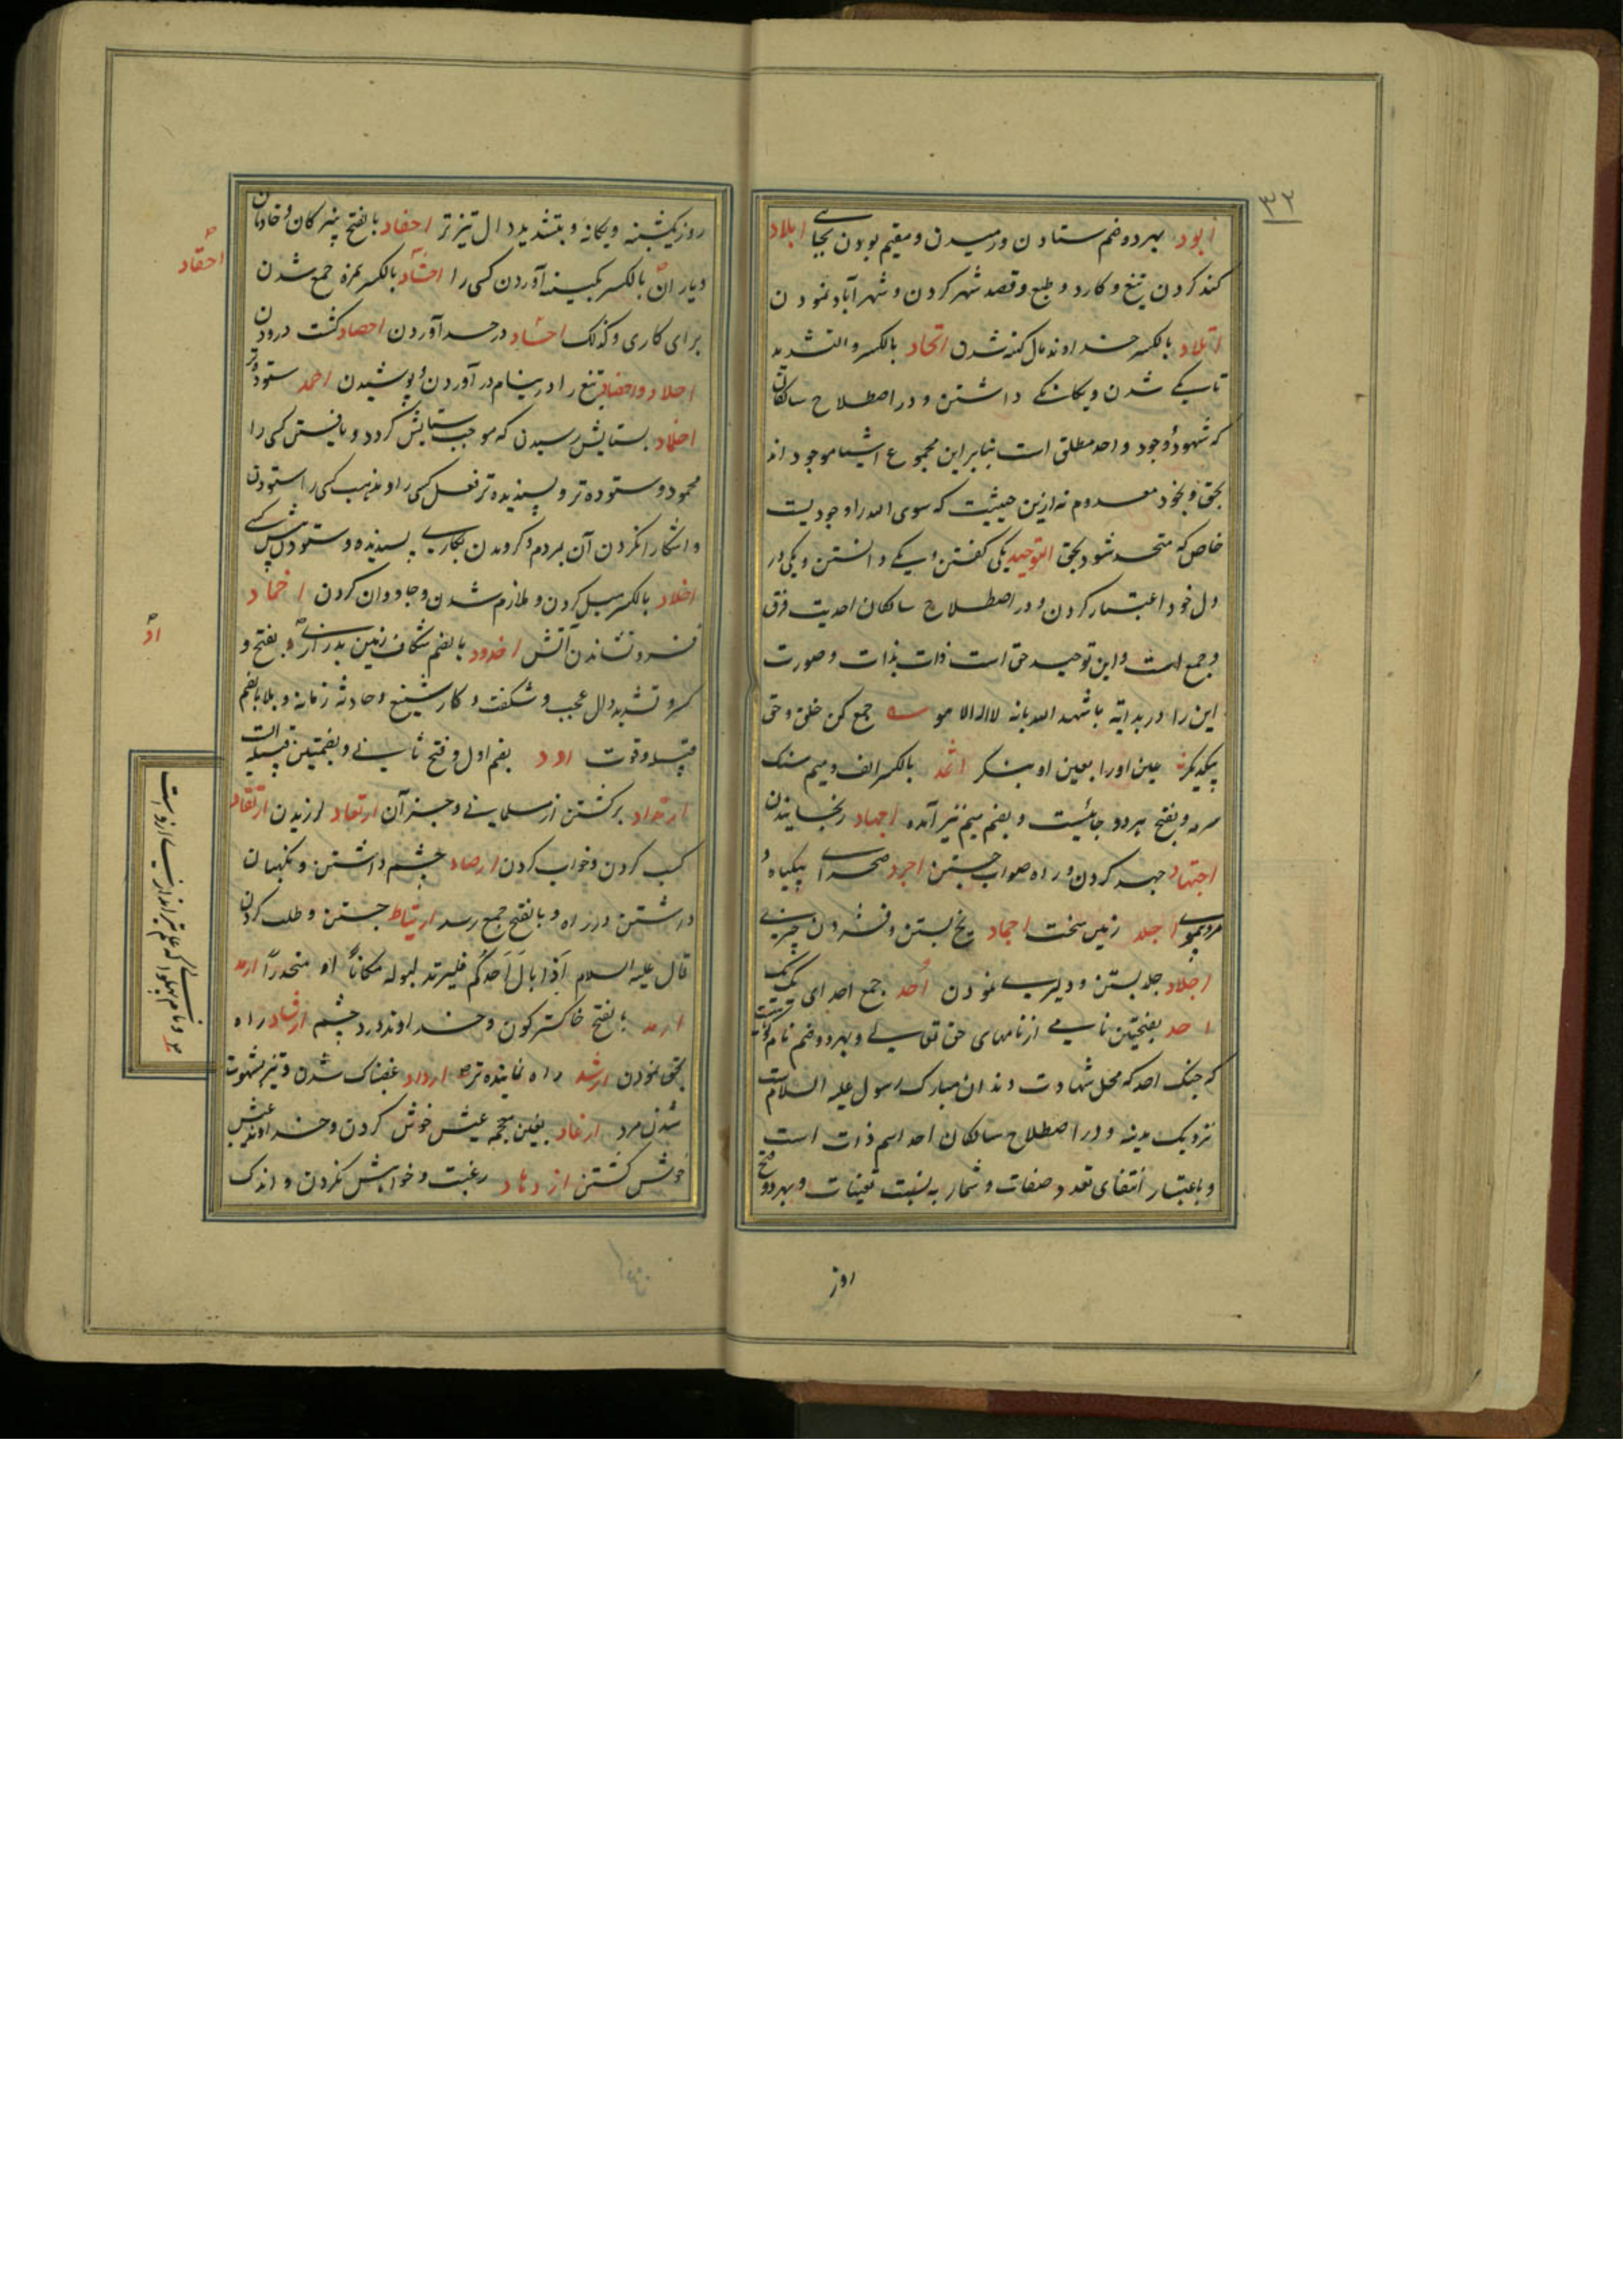 ۳۲
ابود بهر دو ضم ستادن و رمیدن و مقیم بودن بجای ابلاد
کند کردن تیغ و کارد و طبع و قصد شهر کردن و شهر آباد نمودن
اتلاد بالکسر خداوند مال کهنه شدن اتحاد بالکسر و التشدید
تا یکی شدن و یکانکی داشتن و در اصطلاح سالکان
که شهود وجود واحد مطلق است بنابر این مجموع اشیا موجود اند
بحق و بخود معدوم نه ازین حیثیت که سوی الله را وجودیست
خاص که متحد شود بحق التوحید یکی کفتن و یکی دانستن و یکی در
دل خود اعتبار کردن و در اصطلاح سالکان احدیت فرق
و جمع است و این توحید حق است ذات بذات و صورت
این را در بدایه باشهد الله بانه لا اله الا هو جمع کن خلق و حق
بیکدیکر عین او را بعین او بنکر اثمد بالکسر الف و میم سنک
سرمه و بفتح هر دو جائیست و بضم میم نیز آمده اجهاد رنجانیدن
اجتهاد جهد کردن و راه صواب جستن اجرد صحرای بیکیاه و
مرد بیموی اجلد زمین سخت اجماد یخ بستن و فشردن چیزی
اجلاد جلد بستن و دلیری نمودن احد جمع احد ای یک یک
احد بفتحتین نامی از نامهای حق تعالی و بهر دو ضم نام کوهیست
که جنک احد که محل شهادت دندان مبارک رسول علیه السلام است
نزدیک مدینه و در اصطلاح سالکان احد اسم ذات است
و باعتبار انتفای تعدد صفات و شمار به نسبت تعینات و بهر دو فتح
روز
روز یکشنبه و یکانه و بتشدید دال تیزتر احفاد بالفتح پسرکان و خادمان
و یاران بالکسر بکینه آوردن کسی را احشاد بالکسر همزه جمع شدن
برای کاری و کذلک احشاد در حسد آوردن احصاد کشت درودن
احلاد و احضاد تیغ را در نیام در آوردن و پوشیدن احمد ستوده تر
احماد بستایش رسیدن که موجب ستایش کردد و یافتن کسی را
محمود و ستوده تر و پسندیده تر فعل کسی را و مذهب کسی را ستودن
و اشکارا کردن آن بمردم و کرویدن بکاری پسندیده و ستودن کسی
اخلاد بالکسر میل کردن و ملازم شدن و جاودان کردن اخماد
فرو نشاندن آتش اخدود بالضم شکاف زمین بدرازی بفتح و
کسر و تشدید دال عجب و شکفت و کار شنیع و حادثه زمانه و بلا بالضم
قبیله و قوت ادد بضم اول و فتح ثانی و بضمتین قبیله است
ارتداد برکشتن از مسلمانی و جز آن ارتعاد لرزیدن ارتقاد
کسب کردن و خواب کردن ارصاد چشم داشتن و نکهبان
داشتن در راه و بالفتح جمع رصد ارتیاط جستن و طلب کردن
قال علیه السلام اذا بال احدکم فلیرتد لبوله مکانا او منحدرا ارمد
ارمد بالفتح خاکستر کون و خداوند درد چشم ارشاد راه
بحق نمودن ارشد راه نماینده تر ارداد غضبناک شدن و تیز شهوت
شدن مرد ارغاد بغین معجمه عیش خوش کردن و خداوند عیش
خوش کشتن ازدهاد رغبت و خواهش نکردن و اندک
احقاد
اد